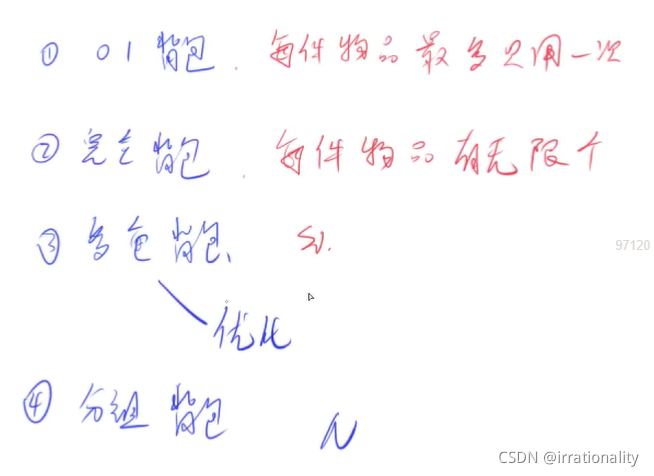 ① 01 背包. 每件物品最多只用一次
② 完全背包. 每件物品有无限个
97120
③ 多重背包、 Si.
优化
④ 分组背包 N
CSDN @irrationality